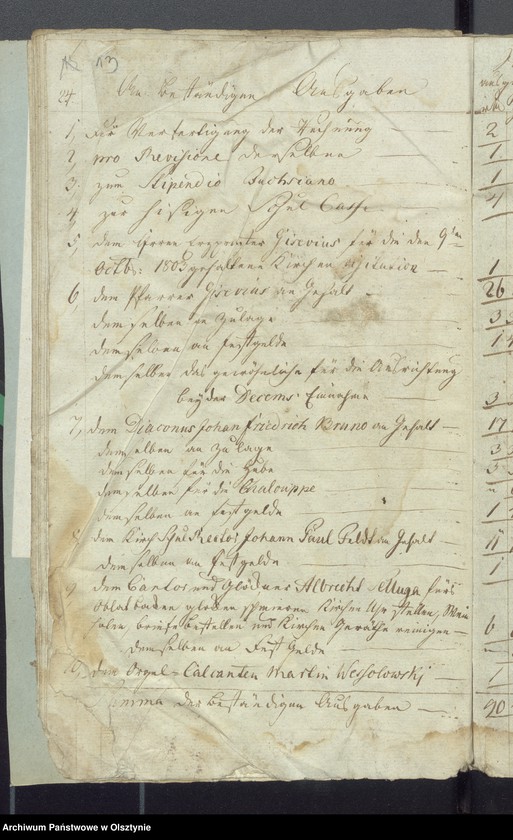 13
24. An beständigen Ausgaben
1, Für Verfertigung der Rechnung
2, pro Revisione derselben
3, zum Stipendio Fuchsiano
4, zur hiesigen Schul Casse
5, dem Herrn Ertzpriester Gisevius für die den 9ten
Octb: 1803 gehaltene Kirchen visitation
6, dem Pfarrer Gisevius an Gehalt
demselben an Zulage
demselben an Festgelde
demselben das gewöhnliche für die Ausrichtung
bey der Decems Einnahme
7, dem Diaconus Johan Friedrich Bruno an Gehalt
demselben an Zulage
demselben für die Hube
demselben für die Chalouppe
demselben an Festgelde
8, dem Kirch Schul Rector Johann Paul Feldt an Gehalt
demselben an Festgelde
9, dem Cantor und Glöckner Albrecht fürs
Oblatbacken glocken schmieren Kirchen Uhr stellen, Wein
holen, briefe bestellen und Kirchen Geräthe reinigen
demselben an Fest Gelde
10, dem Orgel-Calcanten Martin Wessolowski
Summa der beständigen Ausgaben
2
1
1
4
1
26
3
17
1
11
1
6
1
90
Archiwum Państwowe w Olsztynie